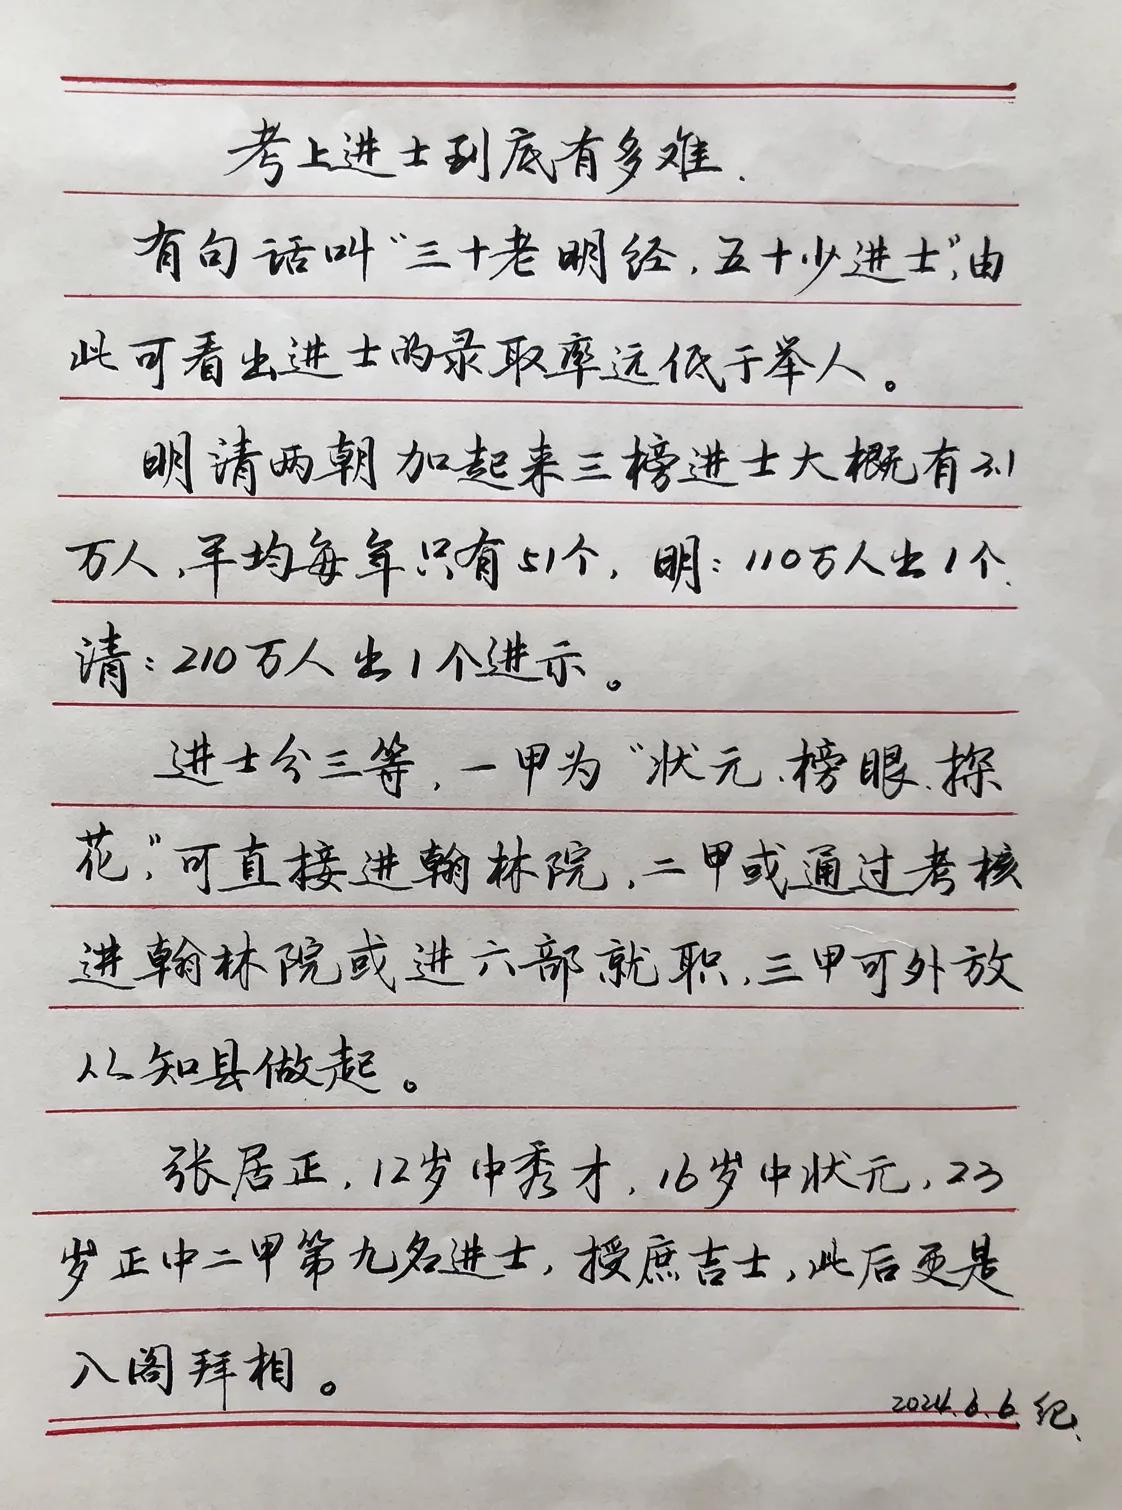 考上进士到底有多难.
有句话叫“三十老明经,五十少进士”,由
此可看出进士的录取率远低于举人。
明清两朝加起来三榜进士大概有3.1
万人,平均每年只有51个,明:110万人出1个.
清:210万人出1个进示。
进士分三等,一甲为“状元、榜眼、探
花”,可直接进翰林院,二甲或通过考核
进翰林院或进六部就职,三甲可外放
从知县做起。
张居正,12岁中秀才,16岁中状元,23
岁正中二甲第九名进士,授庶吉士,此后更是
入阁拜相。
2024.6.6.纪.